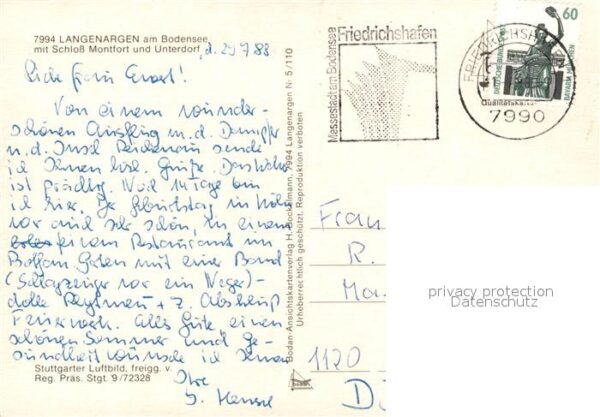 7994 LANGENARGEN am Bodensee
mit Schloß Montfort und Unterdorf
d. 29.7.88
Von einem wunder-
schönen Ausflug m. d. Dampfer
n. d. Insel Reichenau sende
ich Ihnen Grüße. Das
ist prächtig. Noch 14 Tage bin
ich hier. Geburtstag
war auch sehr schön, in einem
feinem Restaurant im
Garten mit einer Band
(Schlagzeuger war ein Neger) -
tolle Rhythmen + z. Abschluß
Feuerwerk. Alles Gute, einen
schönen Sommer und Ge-
sundheit wünsche ich Ihnen
Ihre
Stuttgarter Luftbild, freigg. v.
Reg. Präs. Stgt. 9/72328
Bodan-Ansichtskartenverlag H. Bockelmann, 7994 Langenargen Nr. 5/110
Urheberrechtlich geschützt. Reproduktion verboten
Messestadt am Bodensee
Friedrichshafen
FRIEDRICHSHAFEN
7990
60
DEUTSCHE BUNDESPOST
BAVARIA MÜNCHEN
Frau
R.
1120
privacy protection
Datenschutz